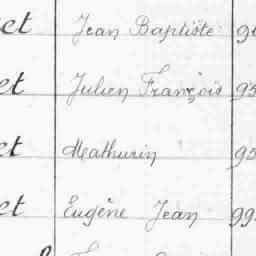 et Jean Baptiste 9
et Julien François 95
et Mathurin 95
et Eugène Jean 99